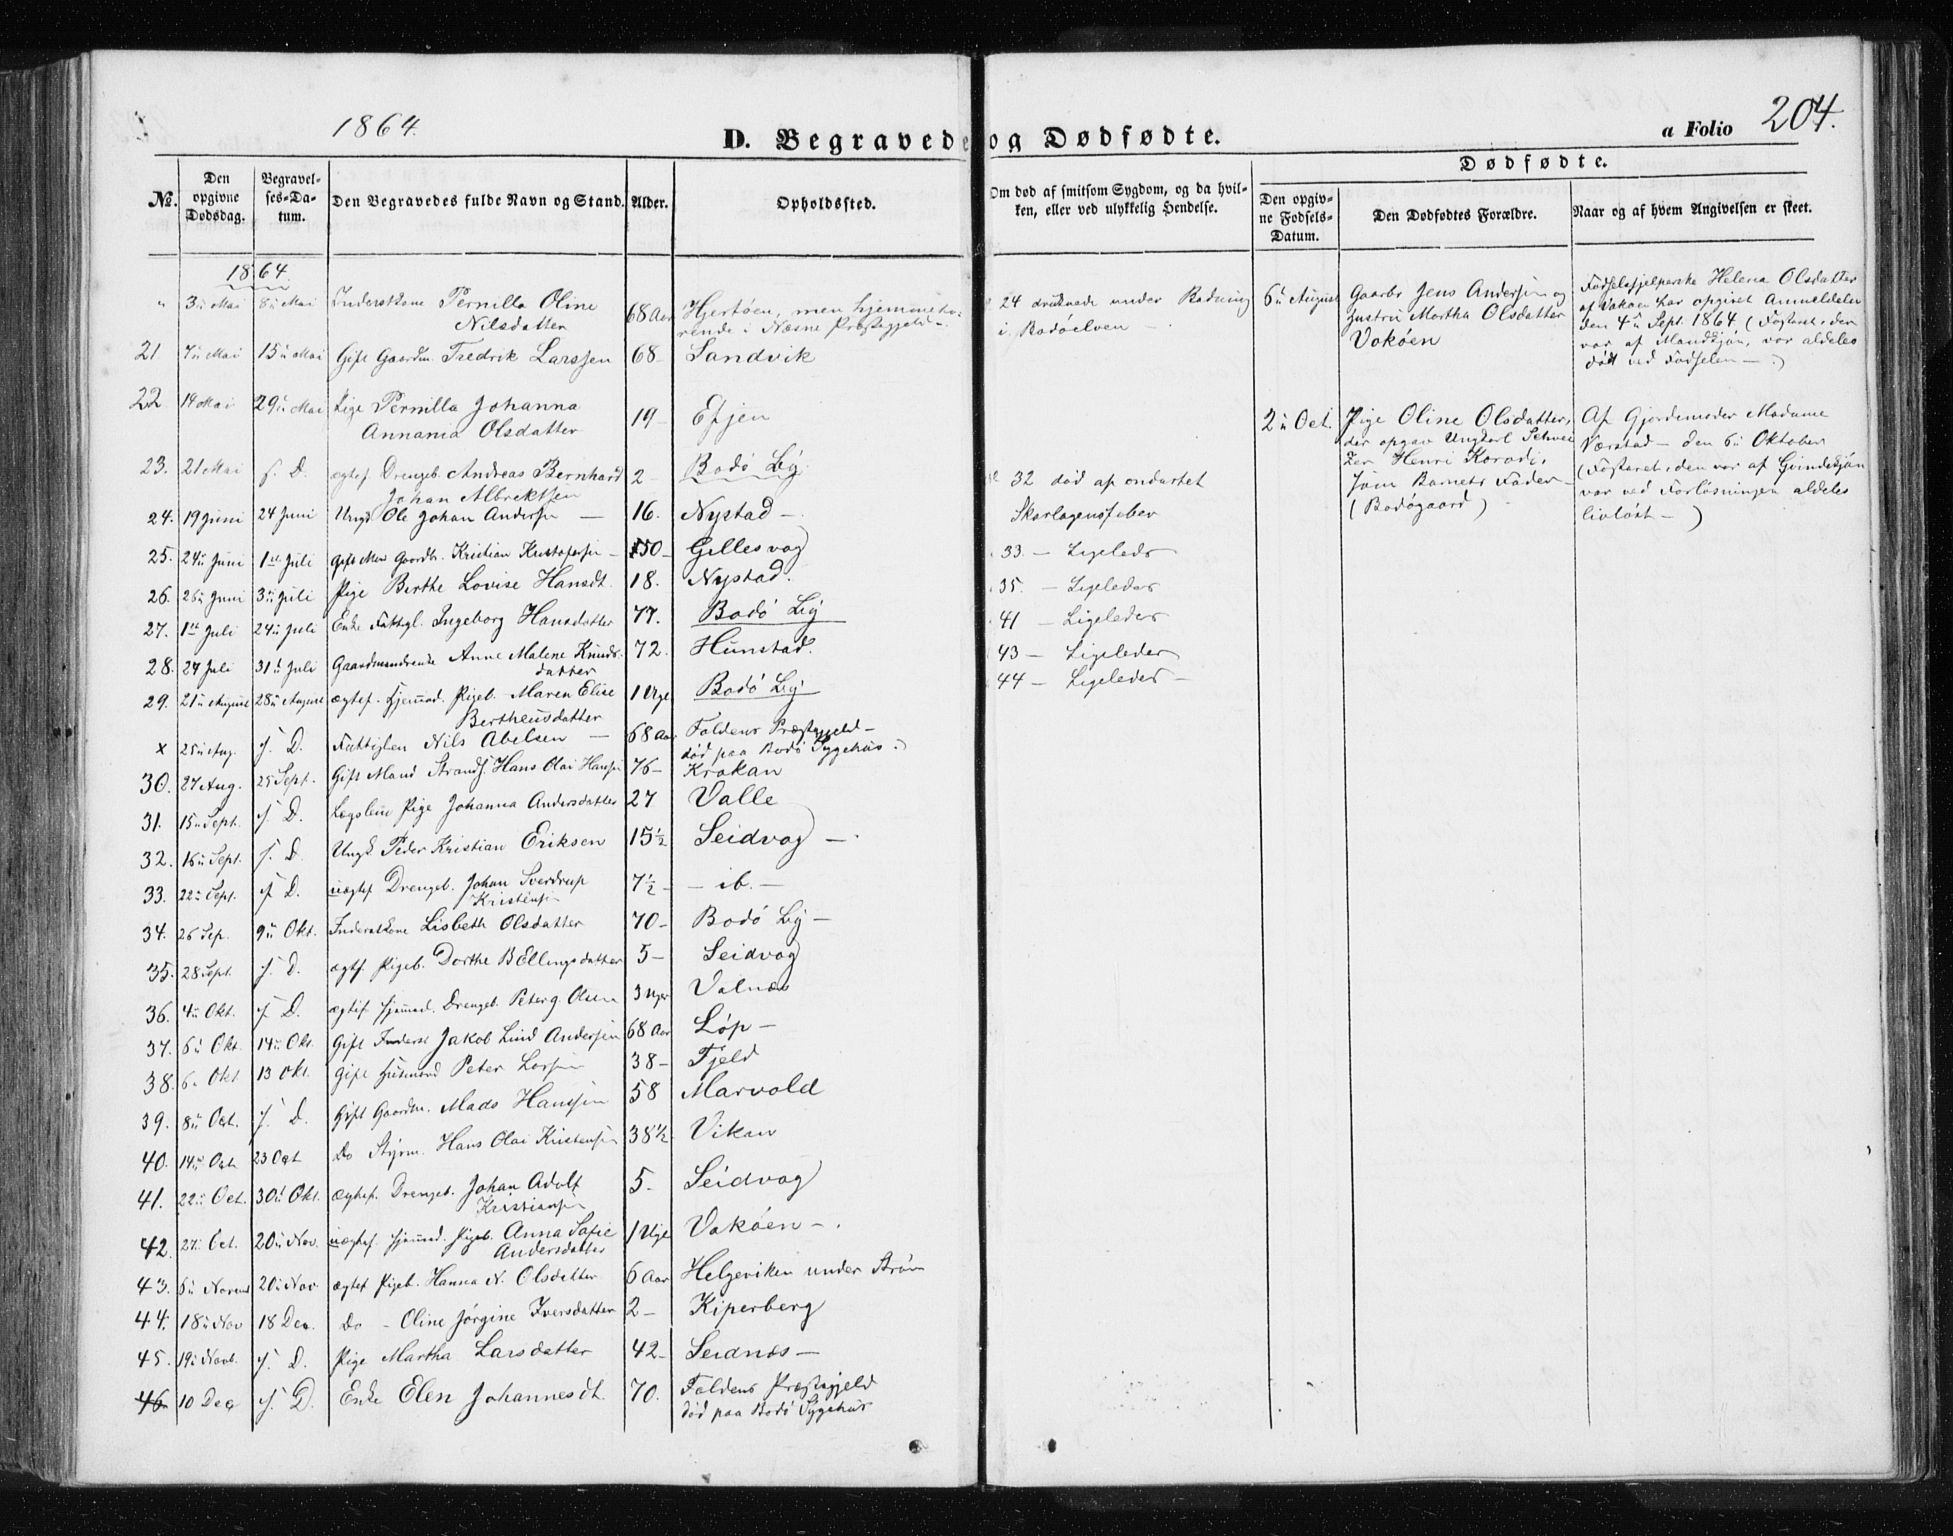 1864
D. Begravede og Dødfødte.
a Folio 204.
Dødfødte.
№.
Den opgivne Dødsdag.
Begravelses-Datum.
Den Begravedes fulde Navn og Stand.
Alder.
Opholdssted.
Om død af smitsom Sygdom, og da hvilken, eller ved ulykkelig Hendelse.
Den opgivne Fødsels-Datum.
Den Dødfødtes Forældre.
Naar og af hvem Angivelsen er skeet.
1864.
" 3ii Mai 8ii Mai Inderstkone Pernilla Oline 68 Aar Hjertøen, men hjemmehø-
Nilsdatter rende i Næsne Præstegjeld -
21 7ii Mai 15ii Mai Gift Gaardm. Fredrik Larssen 68 - Sandvik
22 14 Mai 29ii Mai Pige Pernilla Johanna 19 - Efjen
Annania Olsdatter
23. 21 Mai s. D. ægtef. Drengeb. Andreas Bernhard 2 - Bodø By
Johan Albrektsen
24. 19 Juni 24 Juni Ungk. Ole Johan Andersen - 16. Nystad -
25. 24ii Juni 1ste Juli Gift Mand Gaardbr. Kristian Kristofersen - 50 - Gillesvag
26. 26ii Juni 3ii Juli Pige Berthe Lovise Hansdt. 18. Nystad.
27. 1ste Juli 24ii Juli Enke Fattigl. Ingeborg Hansdatter 77. Bodø By
28. 24 Juli 31ii Juli Gaardmandsenke Anne Malene Knuds- 72. Hunstad.
datter
29. 21ii August 28ii August ægtef. hjemmed. Pigeb. Maren Elise 1 Uge Bodø By
Bertheusdatter
x 25ii Aug. s. D. Fattiglem Nils Abelsen - 68 Aar Foldens Præstegjeld -
død paa Bodø Sygehus.)
30. 27 Aug. 25 Sept. Gift Mand Strands. Hans Olai Hansen 76 - Krokan
31. 15ii Sept. s. D. Lægslem Pige Johanna Andersdatter 27 Valle
32. 16ii Sept. s. D. Ungk. Peder Kristian Eriksen 15½ Seidvag -
33. 22ii Sept. s. D. uægtef. Drengeb. Johan Sverdrup 7½ - - ib. -
Kristensen
34. 26 Sep. 9ii Okt. Inderstkone Lisbeth Olsdatter 70 - Bodø By -
35. 28 Sept. s. D. ægtf. Pigeb. Dorthe B Ellingsdatter 5 - Seidvag
36. 4ii Okt. s. D. ægtef. hjemmed. Drengeb. Peter G. Olsen 3 Uger Valnæs
37. 6ii Okt. 14ii Okt. Gift Inderst Jakob Lind Andersen 68 Aar Løp -
38. 6ii Okt 13 Okt. Gift Husmand Peter Larsen 38 - Fjeld
39. 8ii Oct. s. D. Gift Gaardm. Mads Hanssen 58 Marvold
40. 14ii Oct. 23 Oct Do Styrm. Hans Olai Kristensen 38½. Vikan
41. 22ii Oct. 30ii Okt. Ægtef. Drengeb. Johan Adolf 5. Seidvag
Kristiansen
42. 27ii Oct. 20ii Nov. uægtef. hjemmed. Pigeb. Anna Sofie 1 Uge Vokøen -.
Andersdatter
43. 6ii Novemb 20ii Nov ægtef. Pigeb. Hanna N. Olsdatter 6 Aar Helgeviken under Strøm
44. 18ii Nov 18 Dec. Do - Oline Jørgine Iversdatter 2 - Kiperberg
45. 19ii Novb. s. D. Pige Martha Larsdatter 42 - Seidnæs -
46 10 Dec s. D. Enke Elen Johannesdt. 70. Foldens Præstegjeld
død paa Bodø Sygehus
24 druknede under Badning
i Bodøelven -
32 død af ondartet
Skarlagensfeber
33. - Ligeleds
35. - Ligeledes
41 - Ligeledes
43 - Ligeledes
44 - Ligeledes -
6ii August
Gaarbr Jens Andersen og
Hustru Martha Olsdatter
Vokøen
Fødselshjelperske Helena Olsdatter
af Vokøen har opgivet Anmeldelsen
den 4ii Sept. 1864. (Fosteret, der
var af Mandkjøn, var aldeles
død ved Fødselen -.)
2ii Oct.
Pige Oline Olsdatter,
der opgav Ungkarl Schwei-
zer Henri Korodi,
som Barnets Fader
(Bodøgaard)
Af Gjordemoder Madame
Værstad - den 6ii Oktober
(Fosteret, den var af Qvindekjøn
var ved Forløsningen aldeles
livløst -)